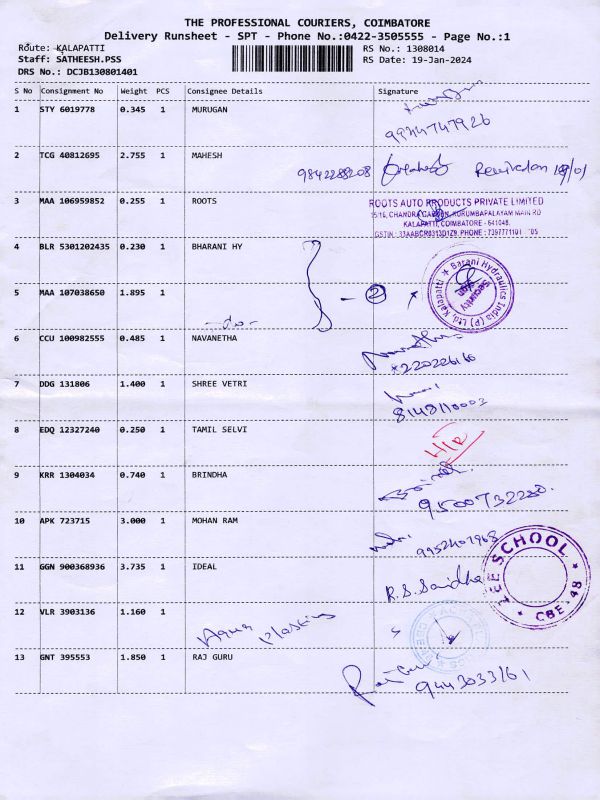 THE PROFESSIONAL COURIERS, COIMBATORE
Delivery Runsheet - SPT - Phone No.:0422-3505555 - Page No.:1
Route: KALAPATTI
RS No.: 1308014
Staff: SATHEESH.PSS
RS Date: 19-Jan-2024
DRS No.: DCJB130801401
S No Consignment No Weight PCS Consignee Details Signature
1 STY 6019778 0.345 1 MURUGAN
9944747926
2 TCG 40812695 2.755 1 MAHESH
9842288208
3 MAA 106959852 0.255 1 ROOTS
ROOTS AUTO PRODUCTS PRIVATE LIMITED
KALAPATTI, COIMBATORE - 641048.
4 BLR 5301202435 0.230 1 BHARANI HY
Barani Hydraulics India (P) Ltd, Kalapatti
Security
5 MAA 107038650 1.895 1
- 2
-do-
6 CCU 100982555 0.485 1 NAVANETHA
7 DDG 131806 1.400 1 SHREE VETRI
8 EDQ 12327240 0.250 1 TAMIL SELVI
9 KRR 1304034 0.740 1 BRINDHA
9500732280.
10 APK 723715 3.000 1 MOHAN RAM
11 GGN 900368936 3.735 1 IDEAL
R.S. Saidha
SCHOOL
CBE-48
12 VLR 3903136 1.160 1
Aqua plastics
13 GNT 395553 1.850 1 RAJ GURU
9443033261